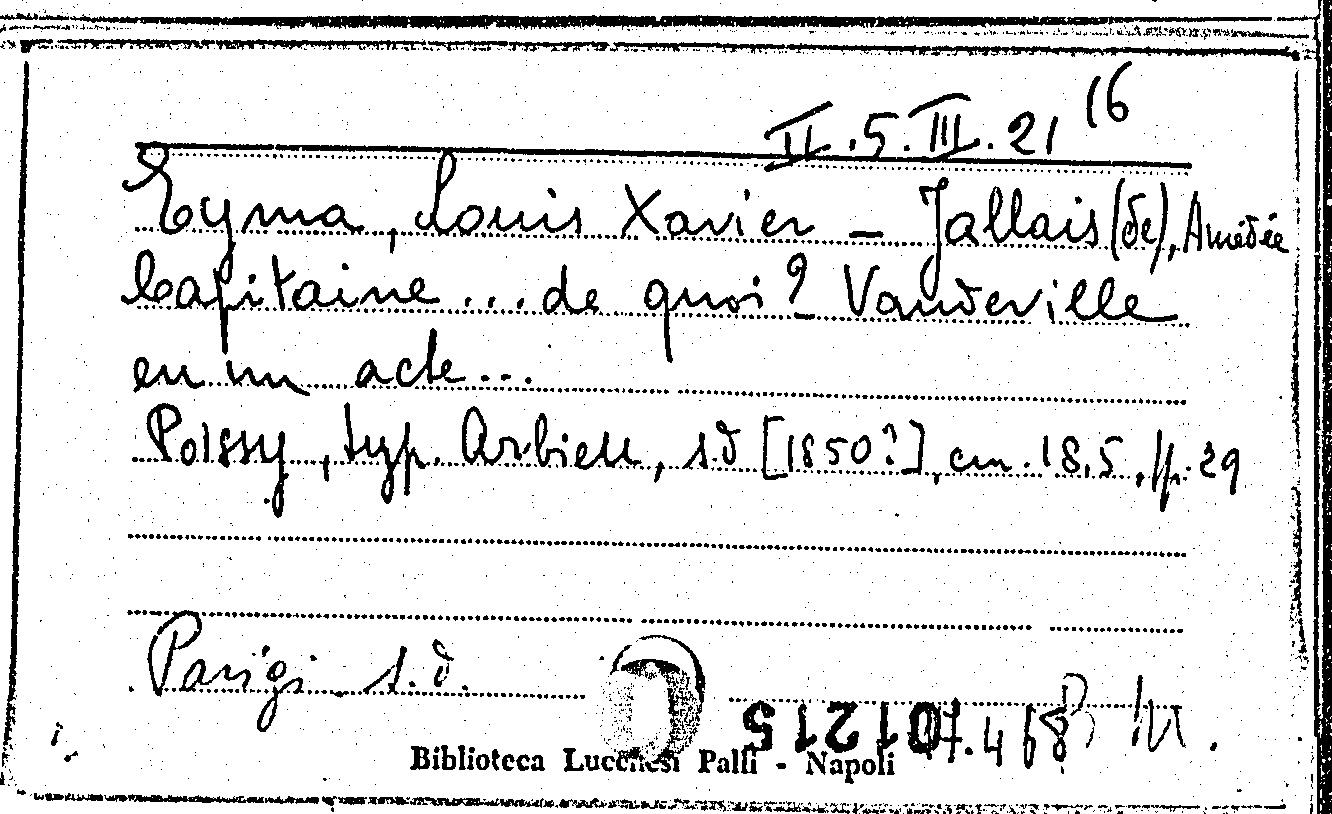 II.5.III.21 16
Eyma, Louis Xavier – Jallais (de), Amédée
Capitaine...de quoi? Vaudeville
en un acte...
Poissy, typ. Arbieu, s.d [1850?], cm. 18,5, pp. 29
Parigi s.d.
012151
Biblioteca Lucchesi Palli - Napoli